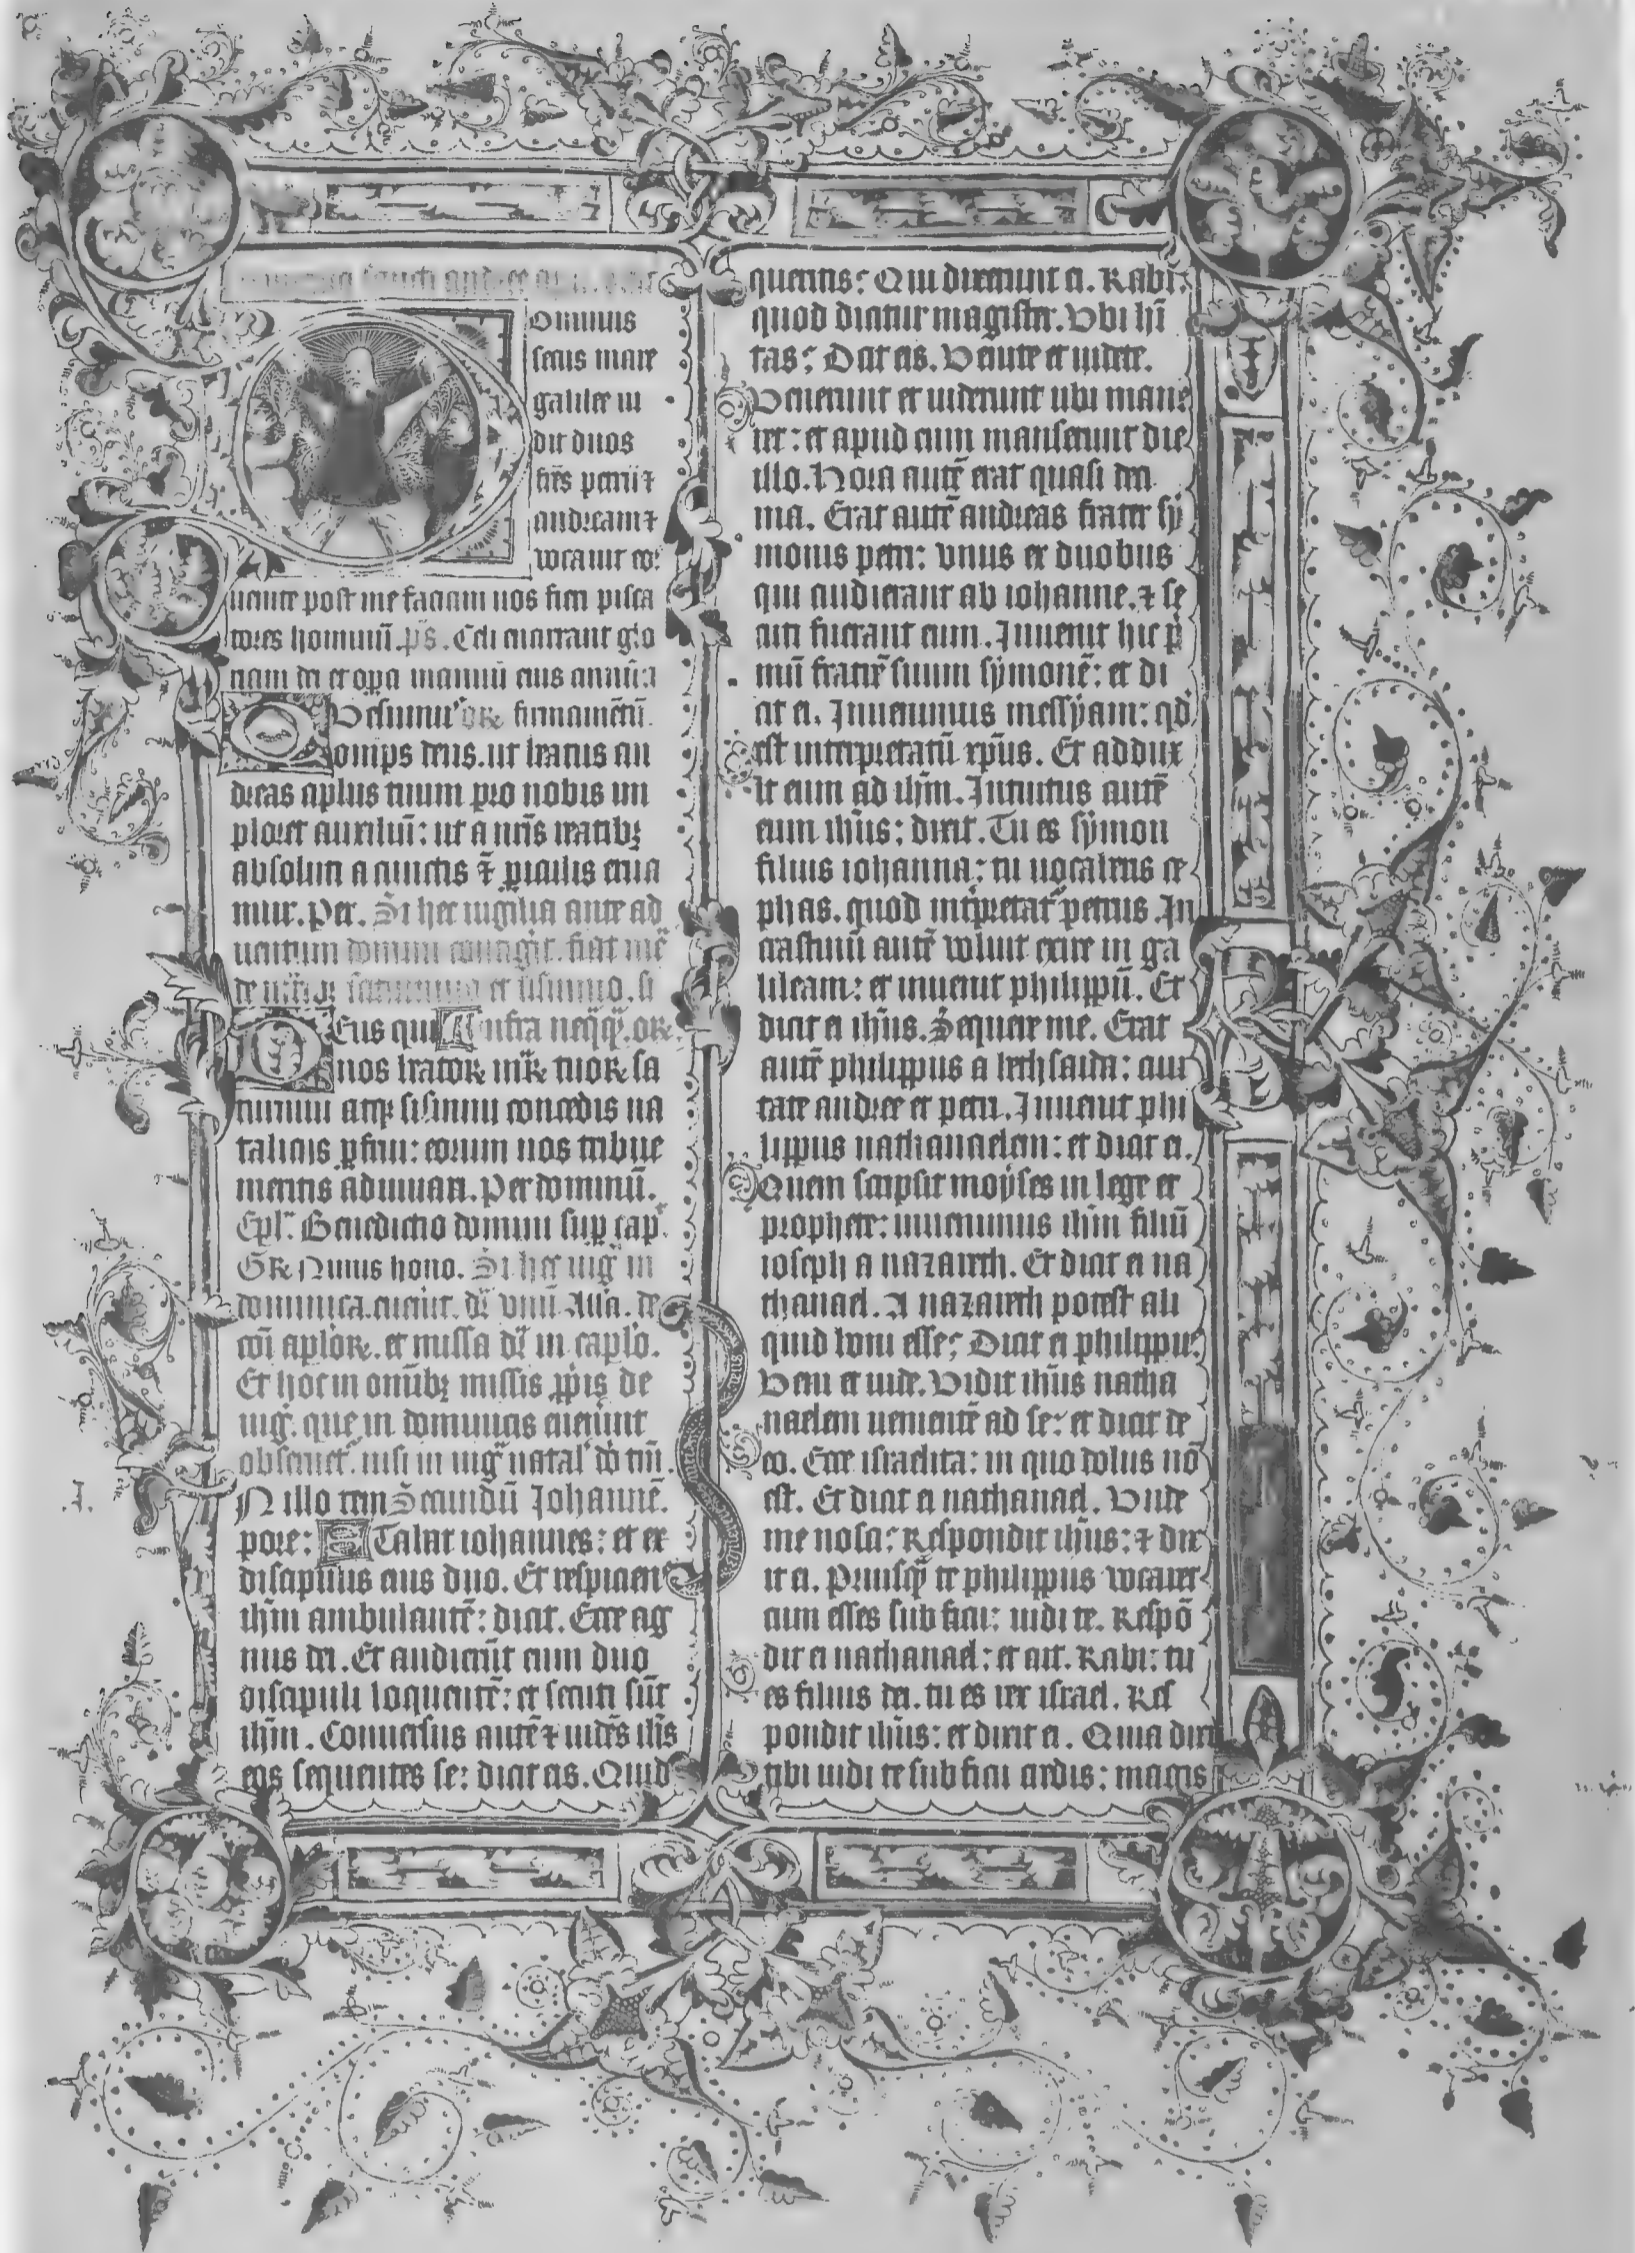 sancti andree
ominus
secus mare
galilee ui
dit duos
fr̄es petrū ⁊
andream ⁊
vocauit eos
uenite post me faciam uos fieri pisca
tores hominū. p̄s. Celi enarrant glo
riam dei et opa manuū eius annūcia
firmamētū.
Q
omips deus. ut beatus an
dreas aplus tuum pro nobis im
ploret auxiliū: ut a nr̄is reatibꝫ
absoluti a cunctis ⁊ periculis erua
mur. Per. Si hec uigilia ante ad
uentum domini contigit. fiat
saturnino et sisinnio. si
D Eus qui Infra
nos beatoꝝ mr̄ꝝ tuoꝝ sa
turnini atqꝫ sisinnii concedis na
taliciis ꝑfrui: eorum nos tribue
meritis adiuuari. Per dominū.
Epl. Benedictio domini sup cap
Gꝝ Nimis hono. Si hec uig in
dominica euenit. dr̄ vnū Alla. de
cōi aploꝝ. et missa dr̄ in caplo.
Et hoc in omībꝫ missis ꝓpiis de
uig. que in dominicis eueniunt
obseruet. nisi in uig natal dn̄i tm̄.
N illo tem Secundū Johannē.
pore: Stabat iohannes: et ex
discipulis eius duo. Et respiciens
ihm̄ ambulantē: dicit. Ecce ag
nus dei. Et audierūt eum duo
discipuli loquentē: et secuti sūt
ihm̄. Conuersus autē ⁊ uidēs ihs̄
eos sequentes se: dicit eis. Quid
queritis? Qui dixerunt ei. Rabi:
quod dicitur magister. Vbi hī
tas? Dicit eis. Venite et uidete.
Venerunt et uiderunt ubi mane
ret: et apud eum manserunt die
illo. Hora autē erat quasi deci
ma. Erat autē andreas frater sẏ
monis petri: vnus ex duobus
qui audierant ab iohanne. ⁊ se
cuti fuerant eum. Inuenit hic p̄
mū fratrē suum sẏmonē: et di
cit ei. Inuenimus messẏam: qd
est interpretatū xp̄us. Et addux
it eum ad ihm̄. Intuitus autē
eum ihūs: dixit. Tu es sẏmon
filius iohanna: tu uocaberis ce
phas. quod int̄pretat̄ petrus. In
crastinū autē voluit exire in ga
lileam: et inuenit philippū. Et
dicit ei ihūs. Sequere me. Erat
autē philippus a bethsaida: ciui
tate andree et petri. Inuenit phi
lippus nathanaelem: et dicit ei.
Quem scripsit moẏses in lege et
prophete: inuenimus ihm̄ filiū
ioseph a nazareth. Et dixit ei na
thanael. A nazareth potest ali
quid boni esse? Dicit ei philippus:
Veni et uide. Vidit ihūs natha
naelem uenientē ad se: et dicit de
eo. Ecce israelita: in quo dolus nō
est. Et dicit ei nathanael. Vnde
me nosti? Respondit ihūs: ⁊ dix
it ei. Priusq̄ te philippus vocaret
cum esses sub ficu: uidi te. Respō
dit ei nathanael: et ait. Rabi: tu
es filius dei. tu es rex israel. Res
pondit ihūs: et dixit ei. Quia dixi
tibi uidi te sub ficu credis: maius